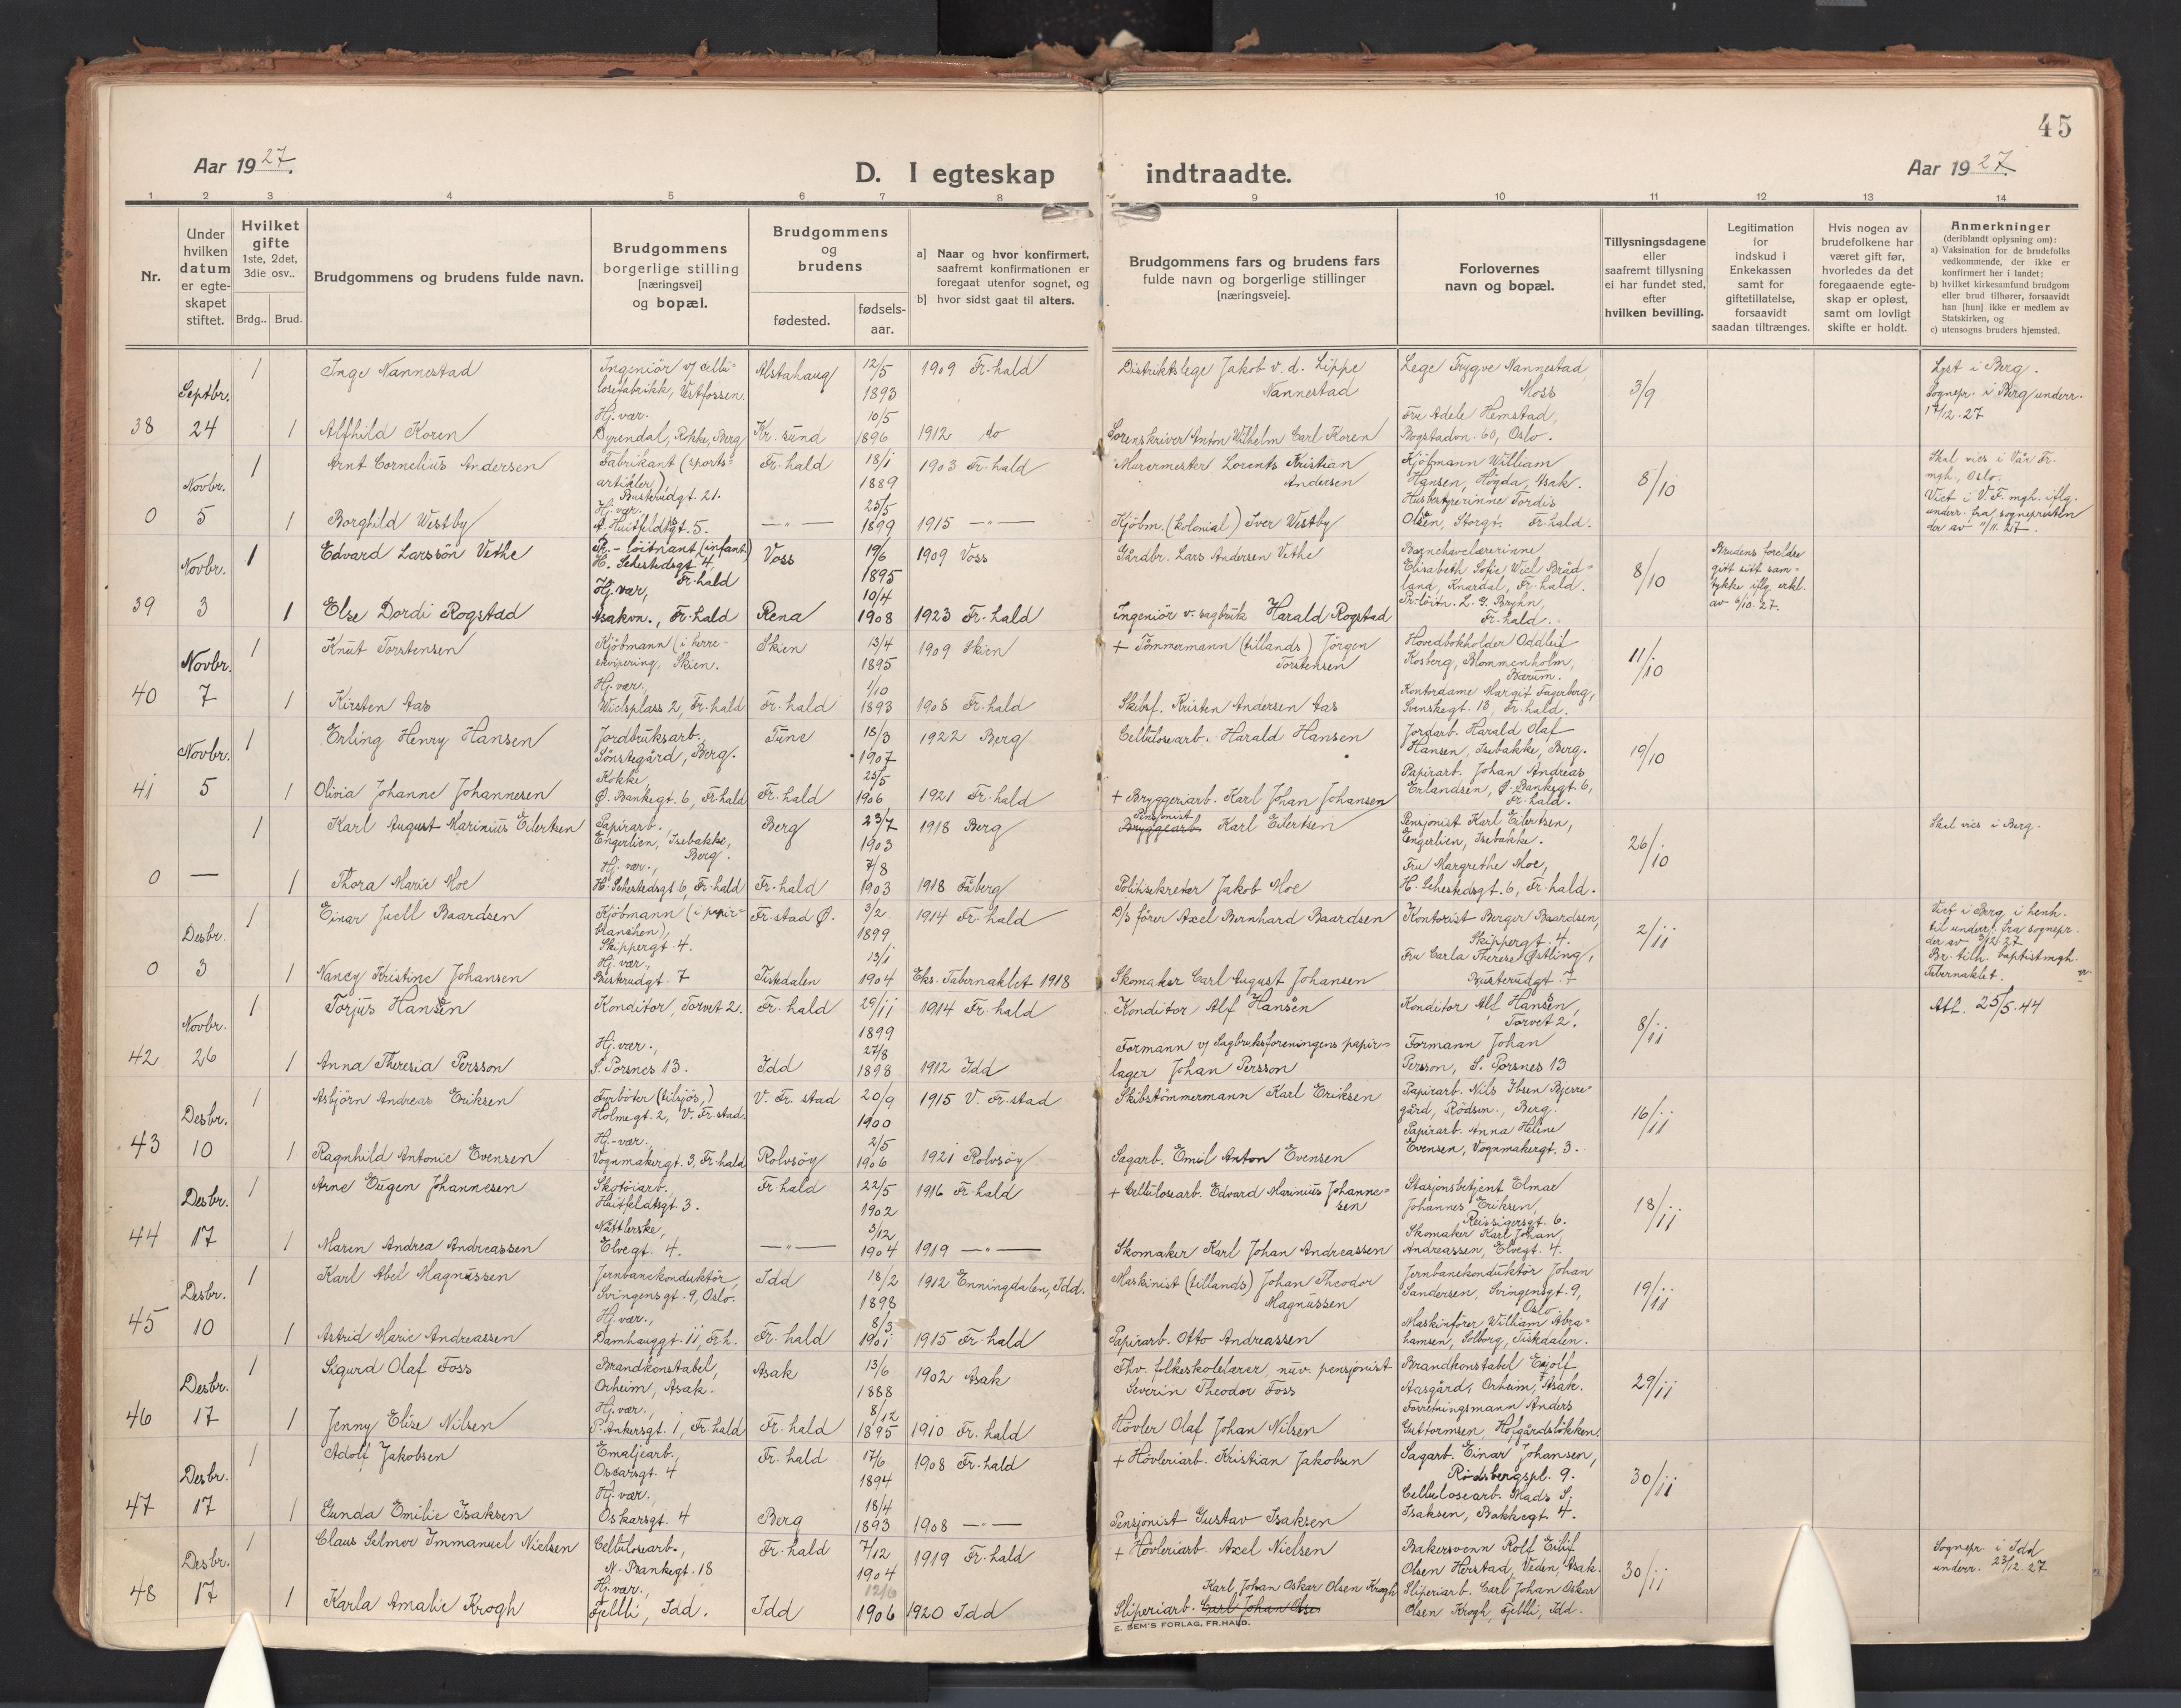 45
Aar 1927.
D. I egteskap indtraadte.
Aar 1927.
1 2 3 4 5 6 7 8 9 10 11 12 13 14
Nr.
Under hvilken datum er egteskapet stiftet.
Hvilket gifte 1ste, 2det, 3die osv..
Brdg.. Brud.
Brudgommens og brudens fulde navn.
Brudgommens borgerlige stilling [næringsvei] og bopæl.
Brudgommens og brudens
fødested.
fødselsaar.
a) Naar og hvor konfirmert, saafremt konfirmationen er foregaat utenfor sognet, og
b) hvor sidst gaat til alters.
Brudgommens fars og brudens fars fulde navn og borgerlige stillinger [næringsveie].
Forlovernes navn og bopæl.
Tillysningsdagene eller saafremt tillysning ei har fundet sted, efter hvilken bevilling.
Legitimation for indskud i Enkekassen samt for giftetillatelse, forsaavidt saadan tiltrænges.
Hvis nogen av brudefolkene har været gift før, hvorledes da det foregaaende egteskap er opløst, samt om lovligt skifte er holdt.
Anmerkninger (deriblandt oplysning om):
a) Vaksination for de brudefolks vedkommende, der ikke er konfirmert her i landet;
b) hvilket kirkesamfund brudgom eller brud tilhører, forsaavidt han [hun] ikke er medlem av Statskirken, og
c) utensogns bruders hjemsted.
Septbr. 1 Inge Nannestad Ingeniör v/ cellulosefabrikk, Vestfossen. Alstahaug 12/5 1893 1909 Fr.hald Distriktslege Jakob v. d. Lippe Nannestad Lege Trygve Nannestad, Moss 3/9 Lyst i Berg. Sognepr. i Berg underr. 17/12.27
38 24 1 Alfhild Koren Hj. vær. Dyrendal, Rokke, Berg Kr.sund 10/5 1896 1912 do Sorenskriver Anton Wilhelm Carl Koren Fru Adele Hemstad, Bogstadvn. 60, Oslo.
Novbr. 1 Arnt Cornelius Andersen Fabrikant (sportsartikler) Busterudgt. 21. Fr.hald 18/1 1889 1903 Fr.hald Murermester Lorents Kristian Andersen Kjöbmann William Hansen, Högda, Asak. 8/10 Skal vies i Vår Fr. mgh., Oslo. Viet i V.F. mgh. iflg. underr. fra sognepresten der av 11/11.27
0 5 1 Borghild Westby Hj. vær. A. Huitfeldtsgt. 5. —"— 25/5 1899 1915 —"— Kjöbm. (kolonial) Iver Westby Husbestyrerinne Tordis Olsen, Storgt. Fr.hald.
Novbr. 1 Edvard Larssön Vethe Pr.-löitnant (infant.) H. Sehestedsgt 4, Fr.hald Voss 19/6 1895 1909 Voss Gårdbr. Lars Andersen Vethe Barnehavelærerinne Elisabeth Sofie Wiel Brådland, Knardal, Fr.hald. 8/10 Brudens foreldre gitt sitt samtykke iflg. erkl. av 6/10.27.
39 3 1 Else Dordi Rogstad Hj. vær, Asakvn., Fr.hald Rena 10/4 1908 1923 Fr.hald Ingeniör v. sagbruk Harald Rogstad Pr.löitn. L. G. Bryhn, Fr.hald.
Novbr. 1 Knut Torstensen Kjöbmann (i herreekvipering, Skien. Skien 13/4 1895 1909 Skien + Tömmermann (tillands) Jörgen Torstensen Hovedbokholder Oddleif Kosberg, Blommenholm, Bærum. 11/10
40 7 1 Kirsten Aas Hj. vær., Wielsplass 2, Fr.hald Fr.hald 1/10 1893 1908 Fr.hald Skibsf. Kristen Andersen Aas Kontordame Margit Fagerberg, Svenskegt. 13, Fr.hald.
Novbr. 1 Erling Henry Hansen Jordbruksarb., Sönstegård, Berg. Tune 18/3 1907 1922 Berg Cellulosearb. Harald Hansen Jordarb. Harald Olaf Hansen, Isebakke, Berg. 19/10
41 5 1 Olivia Johanne Johannesen Kokke, Ø. Bankegt. 6, Fr.hald Fr.hald 25/5 1906 1921 Fr.hald + Bryggeriarb. Karl Johan Johansen Papirarb. Johan Andreas Erlandsen, Ø. Bankegt. 6, Fr.hald.
1 Karl August Marinius Eilertsen Papirarb., Engerlien, Isebakke, Berg. Berg 23/7 1903 1918 Berg Pensjonist Bryggearb. Karl Eilertsen Pensjonist Karl Eilertsen, Engerlien, Isebakke. 26/10 Skal vies i Berg.
0 — 1 Thora Marie Moe Hj. vær., H. Sehestedsgt 6, Fr.hald Fr.hald 7/8 1903 1918 Fåberg Politisekretær Jakob Moe Fru Margrethe Moe, H. Sehestedsgt. 6, Fr.hald.
Desbr. 1 Einar Juell Baardsen Kjöbmann (i papirbranchen), Skippergt. 4. Fr.stad Ø. 3/2 1899 1914 Fr.hald D/S förer Axel Bernhard Baardsen Kontorist Berger Baardsen, Skippergt. 4. 2/11 Viet i Berg i henh. til underr. fra sognepr. der av 3/12 27 Br. tilh. baptistmgh. Tabernaklet.
0 3 1 Nancy Kristine Johansen Hj. vær., Busterudgt. 7 Tistedalen 13/1 1904 Eks. Tabernaklet 1918 Skomaker Carl August Johansen Fru Carla Therese Östling, Busterudgt. 7
Novbr. 1 Torjus Hansen Konditor, Torvet 2. Fr.hald 29/11 1899 1914 Fr.hald Konditor Alf Hansen Konditor Alf Hansen, Torvet 2. 8/11 Att. 25/5.44
42 26 1 Anna Theresia Persson Hj. vær., S. Porsnes 13. Idd 27/8 1898 1912 Idd Formann v/ Sagbruksforeningens papirlager Johan Persson Formann Johan Persson, S. Porsnes 13
Desbr. 1 Asbjörn Andreas Eriksen Fyrböter (tilsjös,) Holmegt. 2, V. Fr.stad. V. Fr.stad 20/9 1900 1915 V. Fr.stad Skibstömmermann Karl Eriksen Papirarb. Nils Ibsen Bjerregård, Rödsvn., Berg. 16/11
43 10 1 Ragnhild Antonie Evensen Hj.-vær., Vognmakergt. 3, Fr.hald Rolvsöy 2/5 1906 1921 Rolvsöy Sagarb. Emil Anton Evensen Papirarb. Anna Helene Evensen, Vognmakergt. 3.
Desbr. 1 Arne Eugen Johannesen Skotöiarb. Huitfeldtsgt. 3. Fr.hald 22/5 1902 1916 Fr.hald + Cellulosearb. Edvard Marinius Johannesen Stasjonsbetjent Elmar Johannes Eriksen, Reissigersgt. 6. 18/11
44 17 1 Maren Andrea Andreassen Nåttlerske, Elvegt. 4. —"— 3/12 1904 1919 —"— Skomaker Karl Johan Andreassen Skomaker Karl Johan Andreassen, Elvegt. 4.
Desbr. 1 Karl Abel Magnussen Jernbanekonduktör, Svingensgt. 9, Oslo. Idd 18/2 1898 1912 Enningdalen, Idd. Maskinist (tillands) Johan Theodor Magnussen Jernbanekonduktör Johan Sandersen, Svingensgt. 9, Oslo. 19/11
45 10 1 Astrid Marie Andreassen Hj. vær., Damhauggt. 11, Fr.h. Fr.hald 8/3 1901 1915 Fr.hald Papirarb. Otto Andreassen Maskinförer William Abrahamsen, Solborg, Tistedalen.
Desbr. 1 Sigurd Olaf Foss Brandkonstabel, Orheim, Asak. Asak 13/6 1888 1902 Asak Fhv. folkeskolelærer, nuv. pensjonist Severin Theodor Foss Brandkonstabel Ejolf Aasgård, Orheim, Asak. 29/11
46 17 1 Jenny Elise Nilsen Hj. vær., P. Ankersgt. 1, Fr.hald Fr.hald 8/12 1895 1910 Fr.hald Hövler Olaf Johan Nilsen Forretningsmann Anders Guttormsen, Hofgårdslökken.
Desbr. 1 Adolf Jakobsen Emaljearb., Oscarsgt. 4 Fr.hald 17/6 1894 1908 Fr.hald + Hövleriarb. Kristian Jakobsen Sagarb. Einar Johansen, Rödsbergspl. 9. 30/11
47 17 1 Gunda Emilie Isaksen Hj. vær., Oskarsgt. 4 Berg 18/4 1893 1908 —"— Pensjonist Gustav Isaksen Cellulosearb. Mads S. Isaksen, Bakkegt. 4.
Desbr. 1 Claus Selmer Immanuel Nielsen Cellulosearb., N. Bankegt. 18 Fr.hald 7/12 1904 1919 Fr.hald + Hövleriarb. Axel Nielsen Bakersvenn Rolf Eilif Olsen Herstad, Veden, Asak. 30/11 Sognepr. i Idd underr. 23/12.27
48 17 1 Karla Amalie Krogh Hj. vær., Fjellli, Idd. Idd 12/6 1906 1920 Idd Sliperiarb. Carl Johan Olsen Karl Johan Oskar Olsen Krogh Sliperiarb. Carl Johan Oskar Olsen Krogh, Fjellli, Idd.
E. SEM'S FORLAG, FR.HALD.